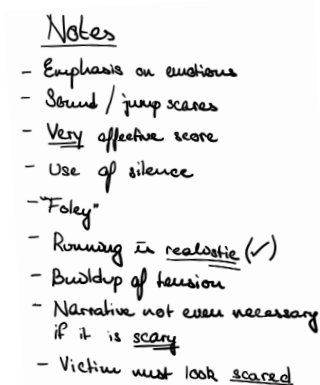 Notes
- Emphasis on emotions
- Sound / jump scares
- Very effective score
- Use of silence
- "Foley"
- Running is realistic (✓)
- Buildup of tension
- Narrative not even necessary
if it is scary
- Victim must look scared